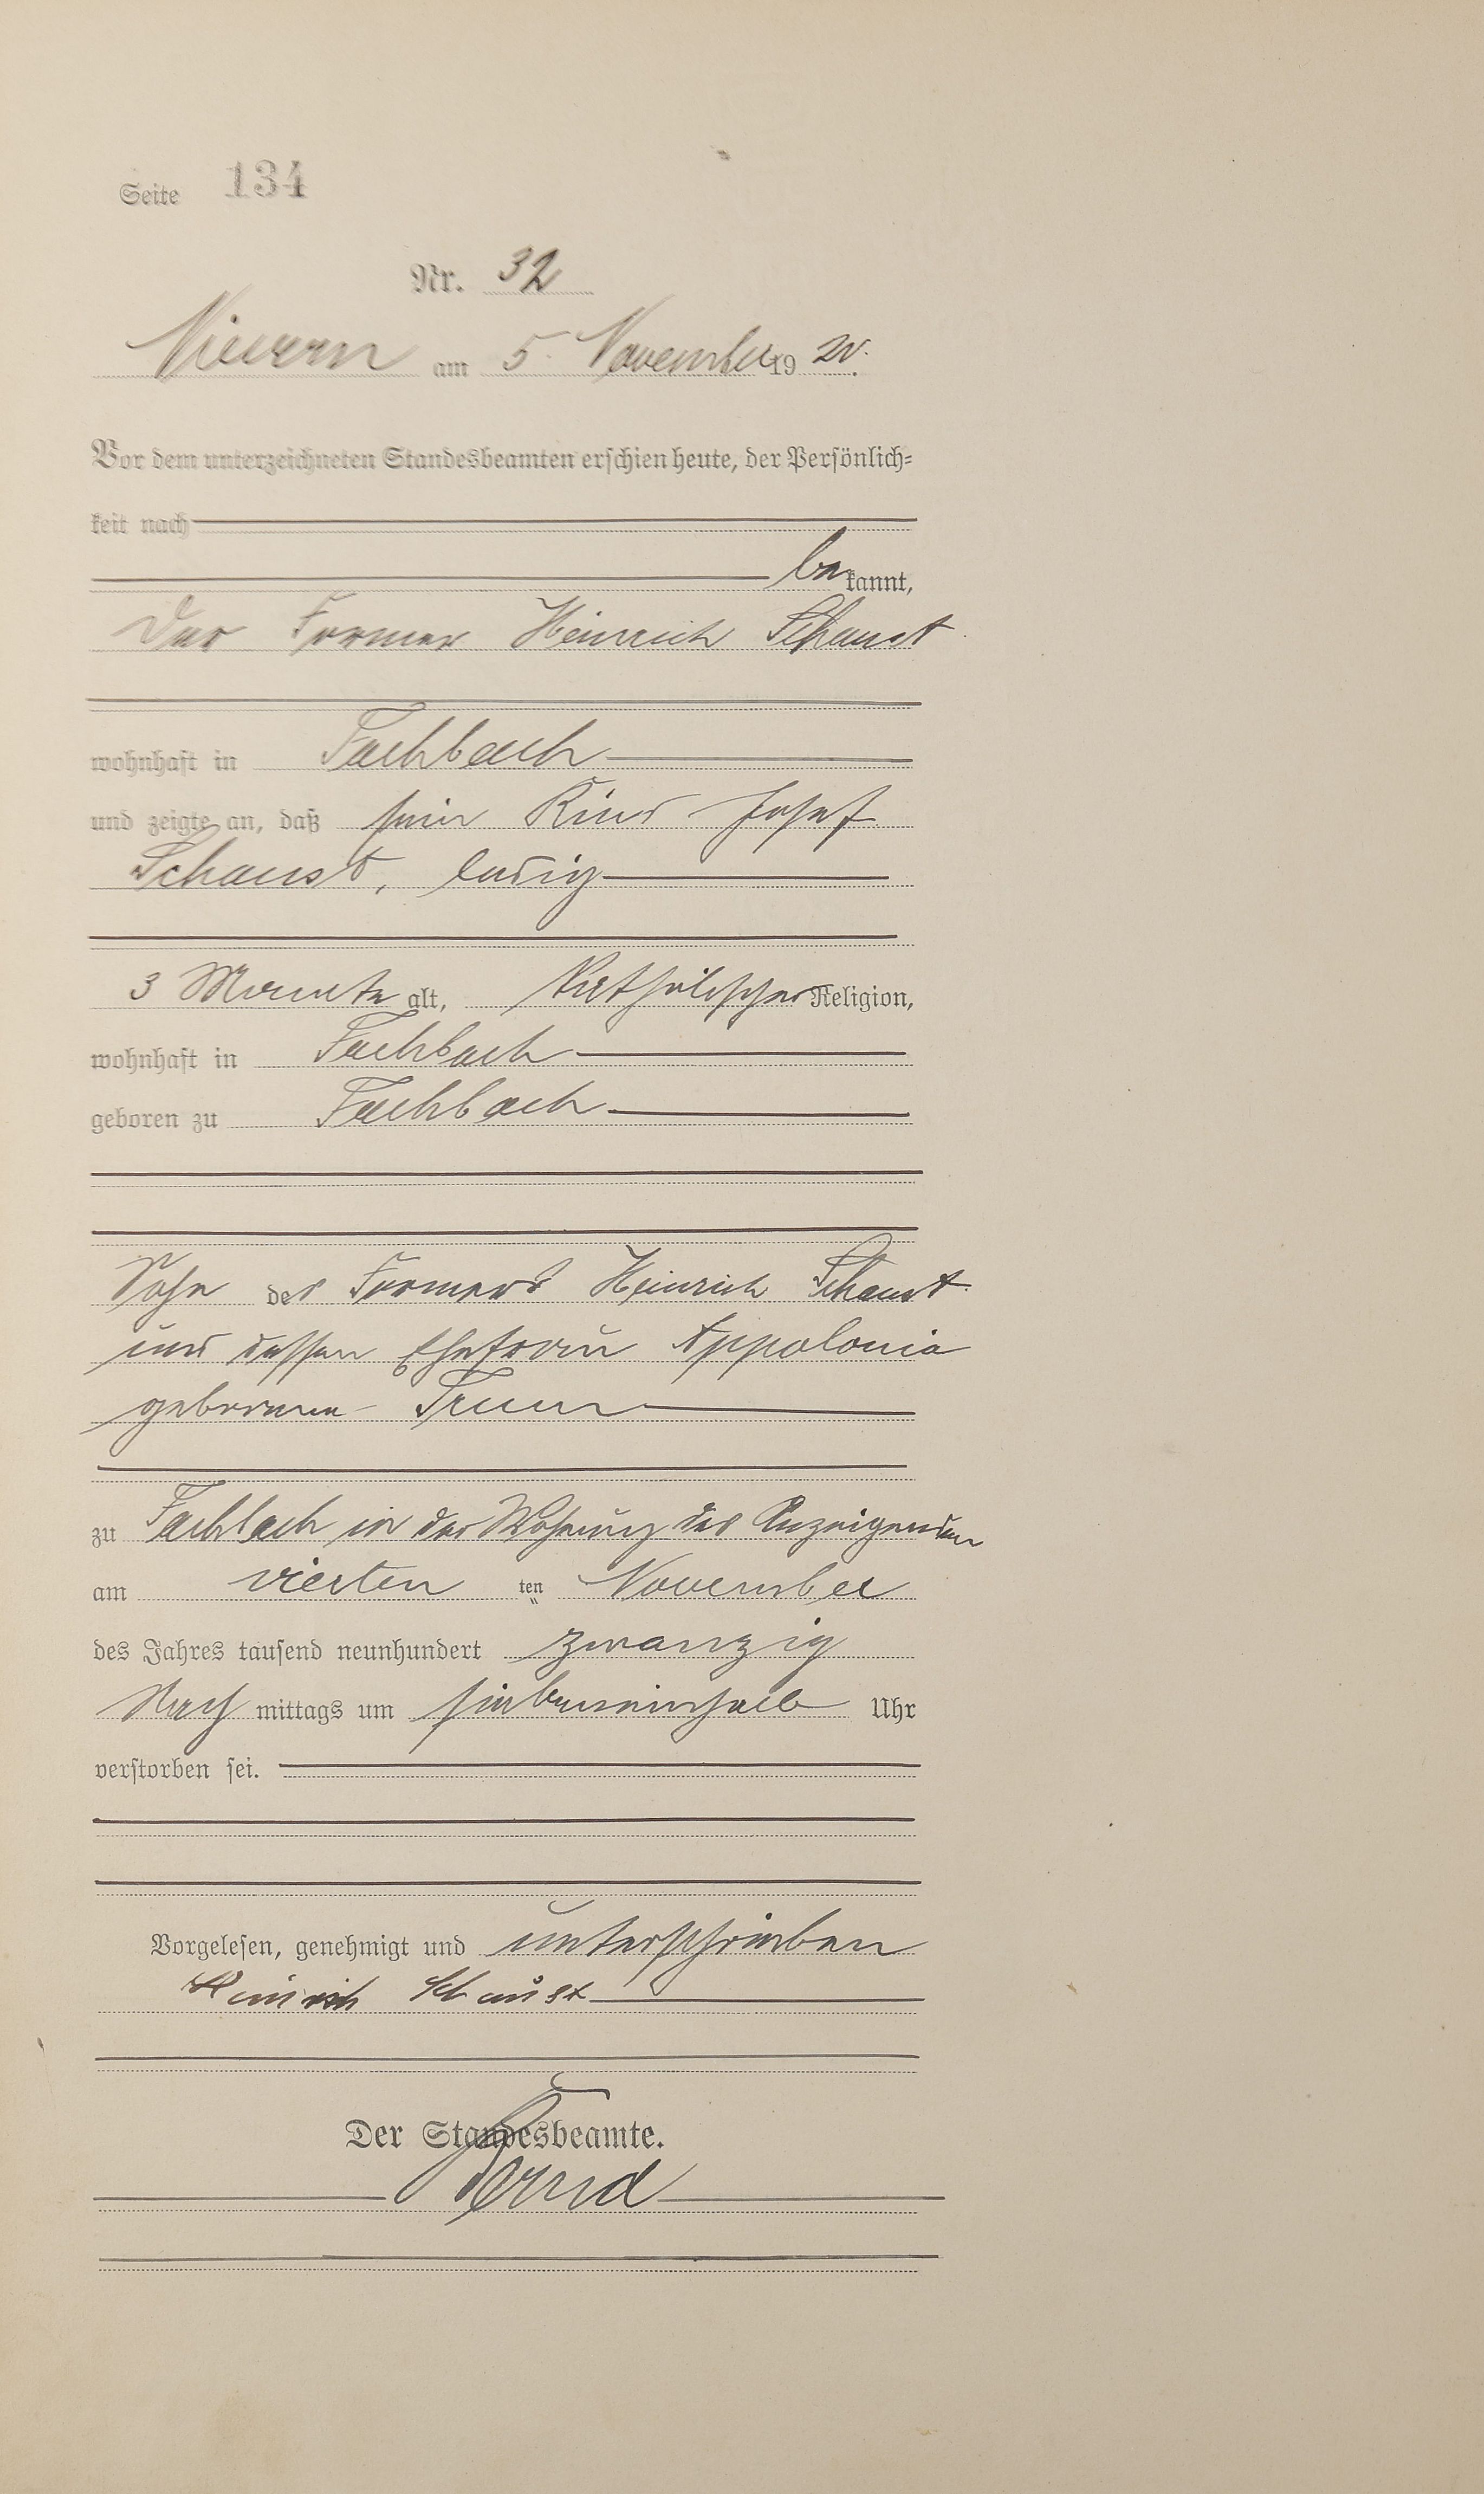 Seite 134
Nr. 32
Nievern am 5. November 1920.
Vor dem unterzeichneten Standesbeamten erschien heute, der Persönlich-
keit nach
bekannt,
der Former Heinrich Schaust
wohnhaft in Fachbach
und zeigte an, daß sein Kind Josef
Schaust, ledig
3 Monate alt, katholischer Religion,
wohnhaft in Fachbach
geboren zu Fachbach
Sohn des Formers Heinrich Schaust
und dessen Ehefrau Appolonia
geborenen
zu Fachbach in der Wohnung des Anzeigenden
am vierten ten November
des Jahres tausend neunhundert zwanzig
Nachmittags um siebeneinhalb Uhr
verstorben sei.
Vorgelesen, genehmigt und unterschrieben
Heinrich Schaust
Der Standesbeamte.